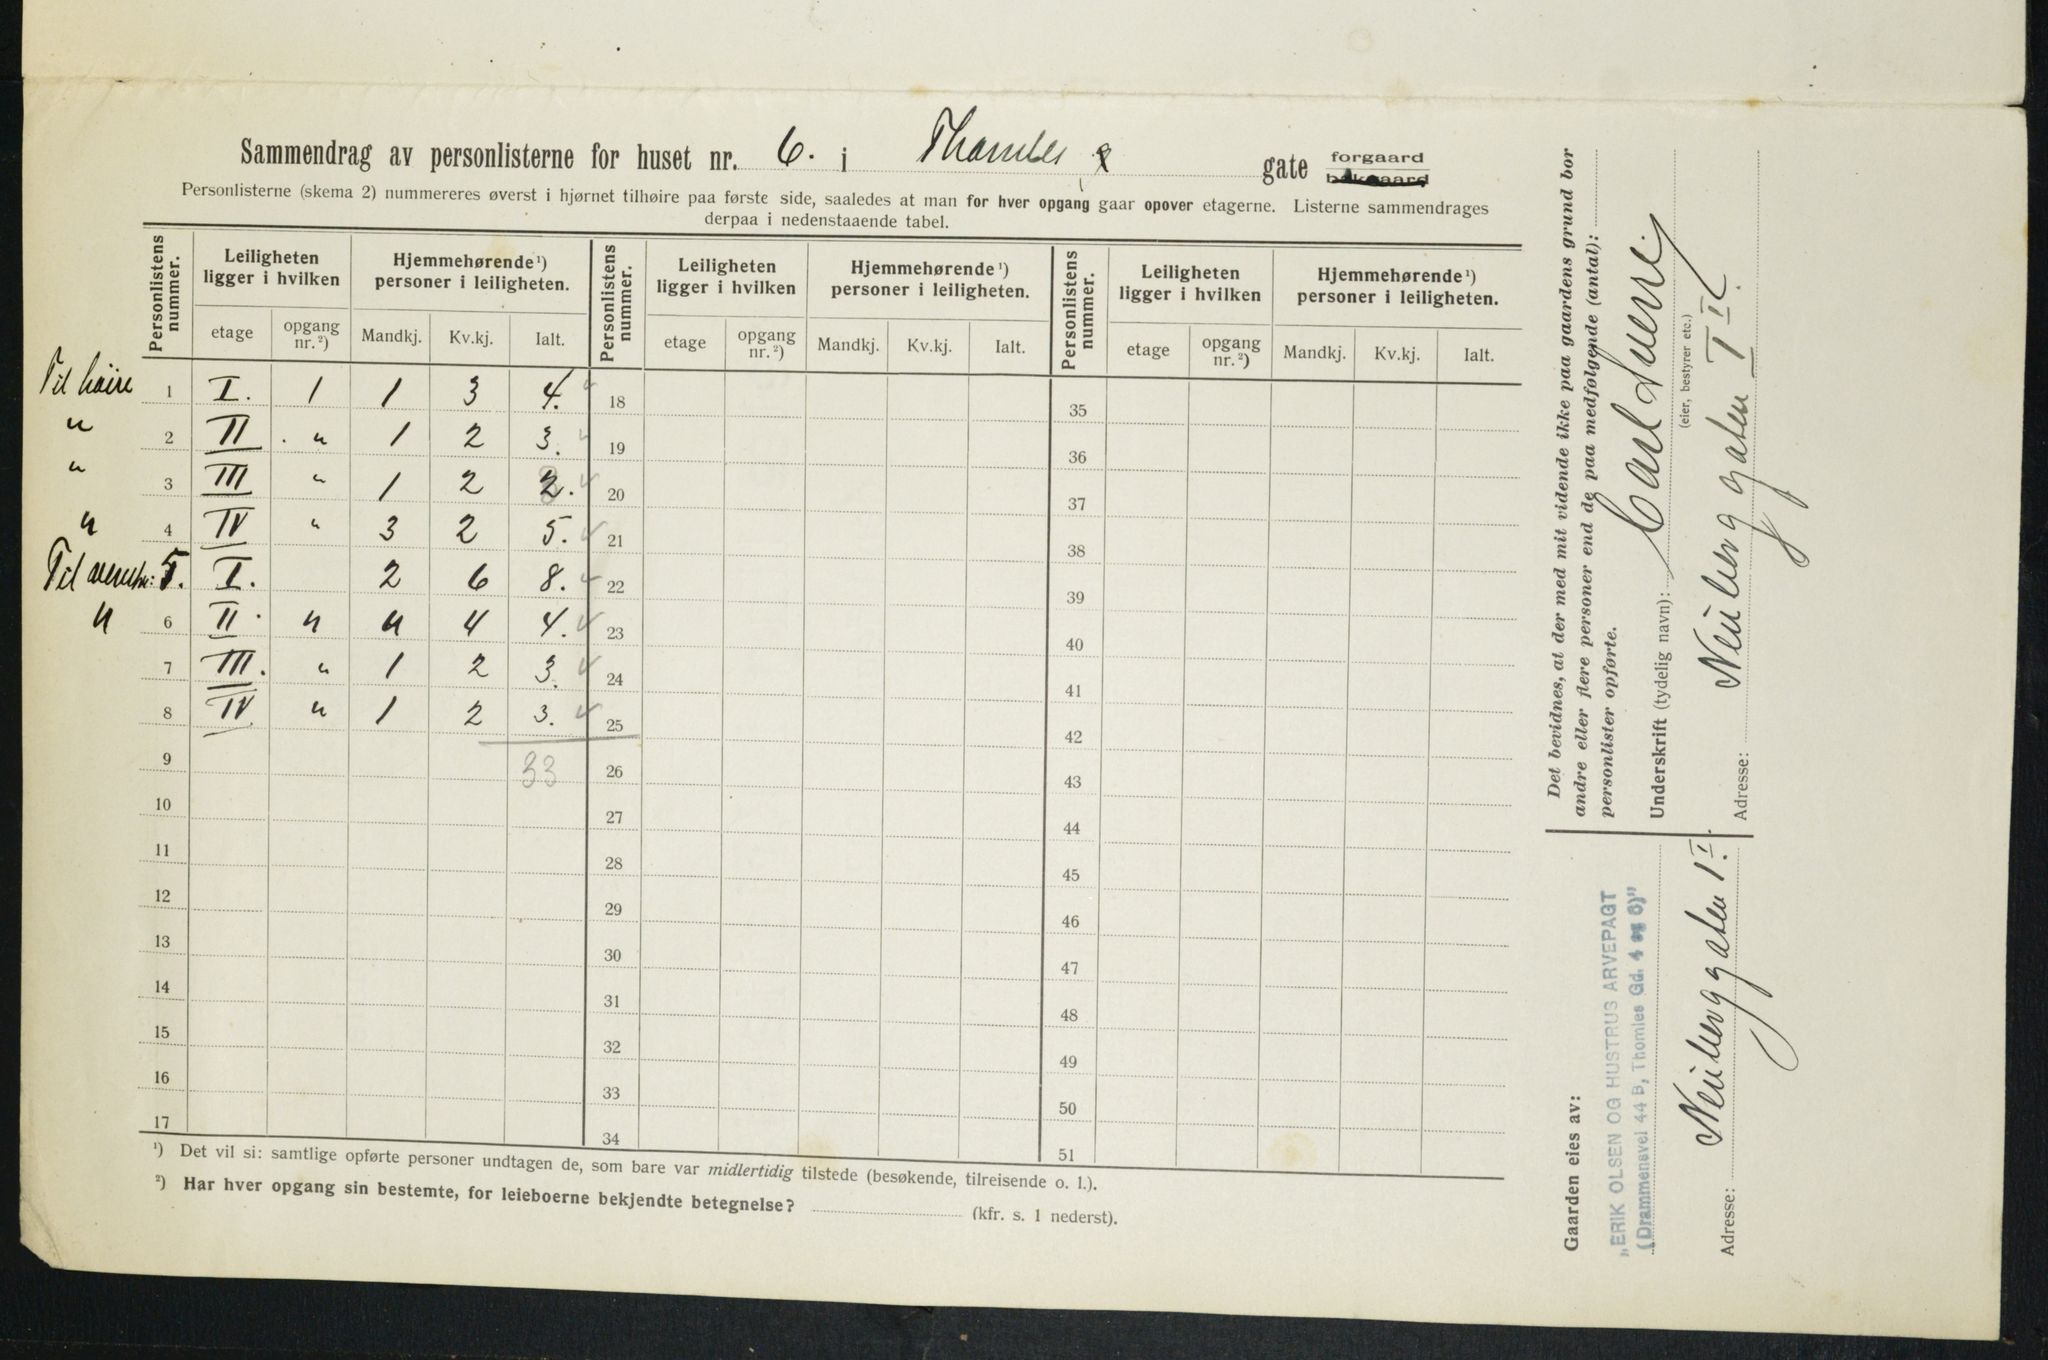 Sammendrag av personlisterne for huset nr. 6. i Thomles gate forgaard bakgaard
Personlisterne (skema 2) nummereres øverst i hjørnet tilhøire paa første side, saaledes at man for hver opgang gaar opover etagerne. Listerne sammendrages
derpaa i nedenstaaende tabel.
Personlistens nummer. Leiligheten ligger i hvilken Hjemmehørende ¹) personer i leiligheten. Personlistens nummer. Leiligheten ligger i hvilken Hjemmehørende ¹) personer i leiligheten. Personlistens nummer. Leiligheten ligger i hvilken Hjemmehørende ¹) personer i leiligheten.
etage opgang nr. ²) Mandkj. Kv.kj. Ialt. etage opgang nr. ²) Mandkj. Kv.kj. Ialt. etage opgang nr. ²) Mandkj. Kv.kj. Ialt.
Til høire 1 I. 1 1 3 4. 18 35
" 2 II " 1 2 3. 19 36
" 3 III " 1 2 2. 20 37
" 4 IV " 3 2 5. 21 38
Til venstre: 5. I. 2 6 8. 22 39
" 6 II " " 4 4. 23 40
7 III. " 1 2 3. 24 41
8 IV " 1 2 3. 25 42
9 33 26 43
10 27 44
11 28 45
12 29 46
13 30 47
14 31 48
15 32 49
16 33 50
17 34 51
¹) Det vil si: samtlige opførte personer undtagen de, som bare var midlertidig tilstede (besøkende, tilreisende o. l.).
²) Har hver opgang sin bestemte, for leieboerne bekjendte betegnelse? (kfr. s. 1 nederst).
Det bevidnes, at der med mit vidende ikke paa gaardens grund bor
andre eller flere personer end de paa medfølgende (antal):
personlister opførte.
Underskrift (tydelig navn): Carl
(eier, bestyrer etc.)
Adresse:
Gaarden eies av:
„ERIK OLSEN OG HUSTRUS ARVEPAGT
(Drammensvei 44 B, Thomles Gd. 4 og 6)"
Adresse: